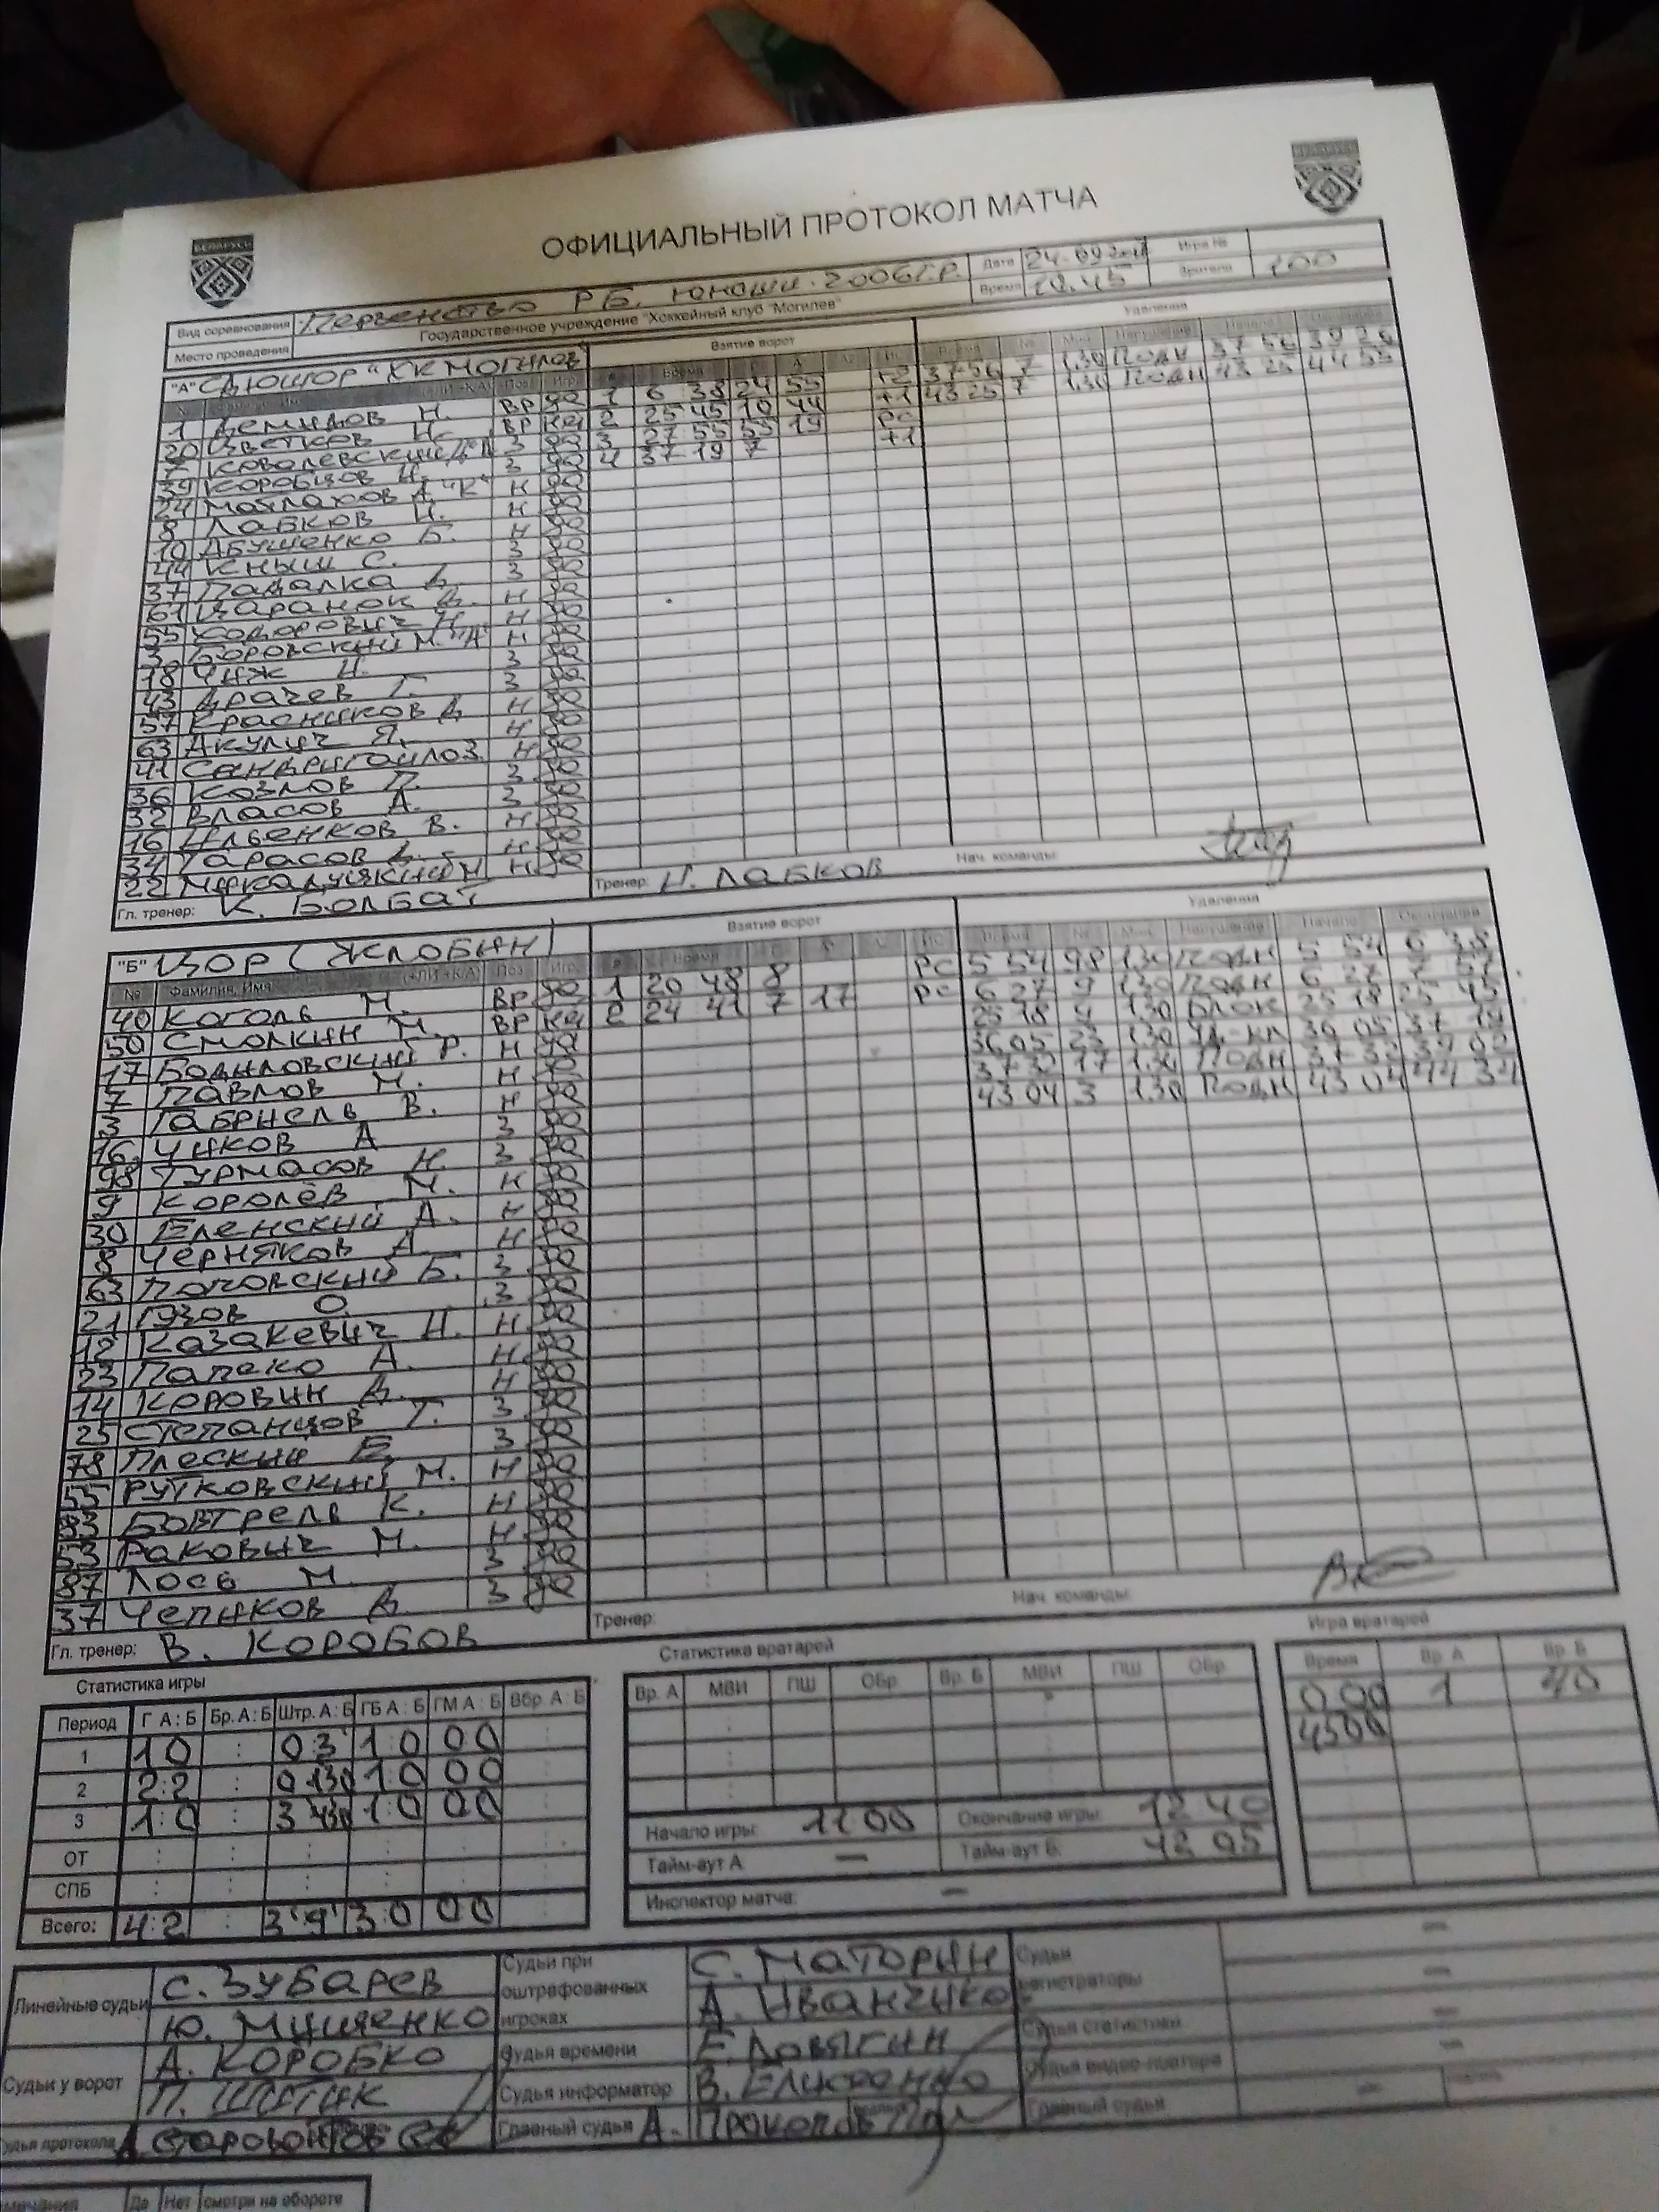 ОФИЦИАЛЬНЫЙ ПРОТОКОЛ МАТЧА
БЕЛАРУСЬ
Вид соревнования Первенство РБ. юноши. 2006 г.р. Дата 24.09 Игра №
Место проведения Государственное учреждение "Хоккейный клуб "Могилев" Время Зрители 100
"А" СДЮШОР "ХК Могилев Взятие ворот Удаления
1 Демидов Н. ВР 1 6 38 24 55 +2 37 56 7 1,30 Подн 37 56 39 26
20 Цветков И. ВР 2 25 45 10 44 +1 43 25 7 1,30 Подн 43 25 44 55
7 Ковалевский З 3 27 55 55 19 РС
39 Коробцов И. З 4 37 19 7 +1
24 А. "К" Н
8 Лабков И. Н
10 Абушенко Б. Н
44 Кныш С. З
37 Падалка Д. З
61 Царанок Д. Н
55 Ходорович Н. Н
3 Боровский М. "А" Н
18 Чиж И. З
43 Драчев Г. З
57 Красников Д Н
63 Акулич Я. Н
41 Н
36 Козлов П. З
32 Власов А. З
16 Ильенков В. Н
34 Тарасов Н
22 Н
Гл. тренер: К. Болбат Тренер: И. Лабков Нач. команды:
"Б" ЦОР (Жлобин) Взятие ворот Удаления
№ Фамилия, Имя (+ЛИ +К/А) Поз Игр Время
40 Коголь М. ВР 1 20 48 8 РС 5 54 98 1,30 Подн 5 54 6 38
50 Смолкин М. ВР 2 24 41 7 17 РС 6 27 9 1,30 Подн 6 27 7 57
17 Бодиловский Р. Н 25 18 9 1,30 Блок 25 18 25 45
7 Павлов М. Н 36 05 23 1,30 Уд-кл 36 05 37 19
3 Габриель В. Н 37 32 17 1,30 Подн 37 32 39 02
16 Чиков А З 43 04 3 1,30 Подн 43 04 44 34
98 Турмасов Н. З
9 Королёв М. Н
30 Еленский А. Н
8 Черняков А. Н
63 Поповский Б. З
21 Гузов О. З
12 Казакевич И. Н
23 Папеко А. Н
14 Коровин Д. Н
25 Степанцов Т. З
78 Плеский Е. З
55 Рутковский М. Н
93 Бовтрель К. Н
53 Ракович М. Н
87 Лось М. З
37 Чепиков В. З
Гл. тренер: В. Коробов Тренер: Нач. команды:
Статистика игры Статистика вратарей Игра вратарей
Период Г А : Б Бр. А : Б Штр. А : Б ГБ А : Б ГМ А : Б Вбр А : Б Вр. А МВИ ПШ ОБр Вр. Б МВИ ПШ ОБр Время Вр. А Вр. Б
1 1 0 : 0 3' 1 0 0 0 0 00 1 40
2 2:2 : 0 1 30 1:0 0 0 45 00
3 1:0 : 3 4 30 1:0 0 0
ОТ
СПБ
Всего: 4:2 : 3' 9' 3:0 0 0
Начало игры: 11 00 Окончание игры: 12 40
Тайм-аут А — Тайм-аут Б: 42 05
Инспектор матча: —
Линейные судьи С. Зубарев
Ю. Мищенко
Судьи при оштрафованных игроках С. Маторин
А. Иванчиков
Судьи регистраторы —
Судьи у ворот А. Коробко
П. Шитик
Судья времени Е. Ловягин
Судья информатор В.
Судья статистики —
Судья видео-повтора —
Судья протокола Главный судья А. Главный судьи
Да Нет смотри на обороте